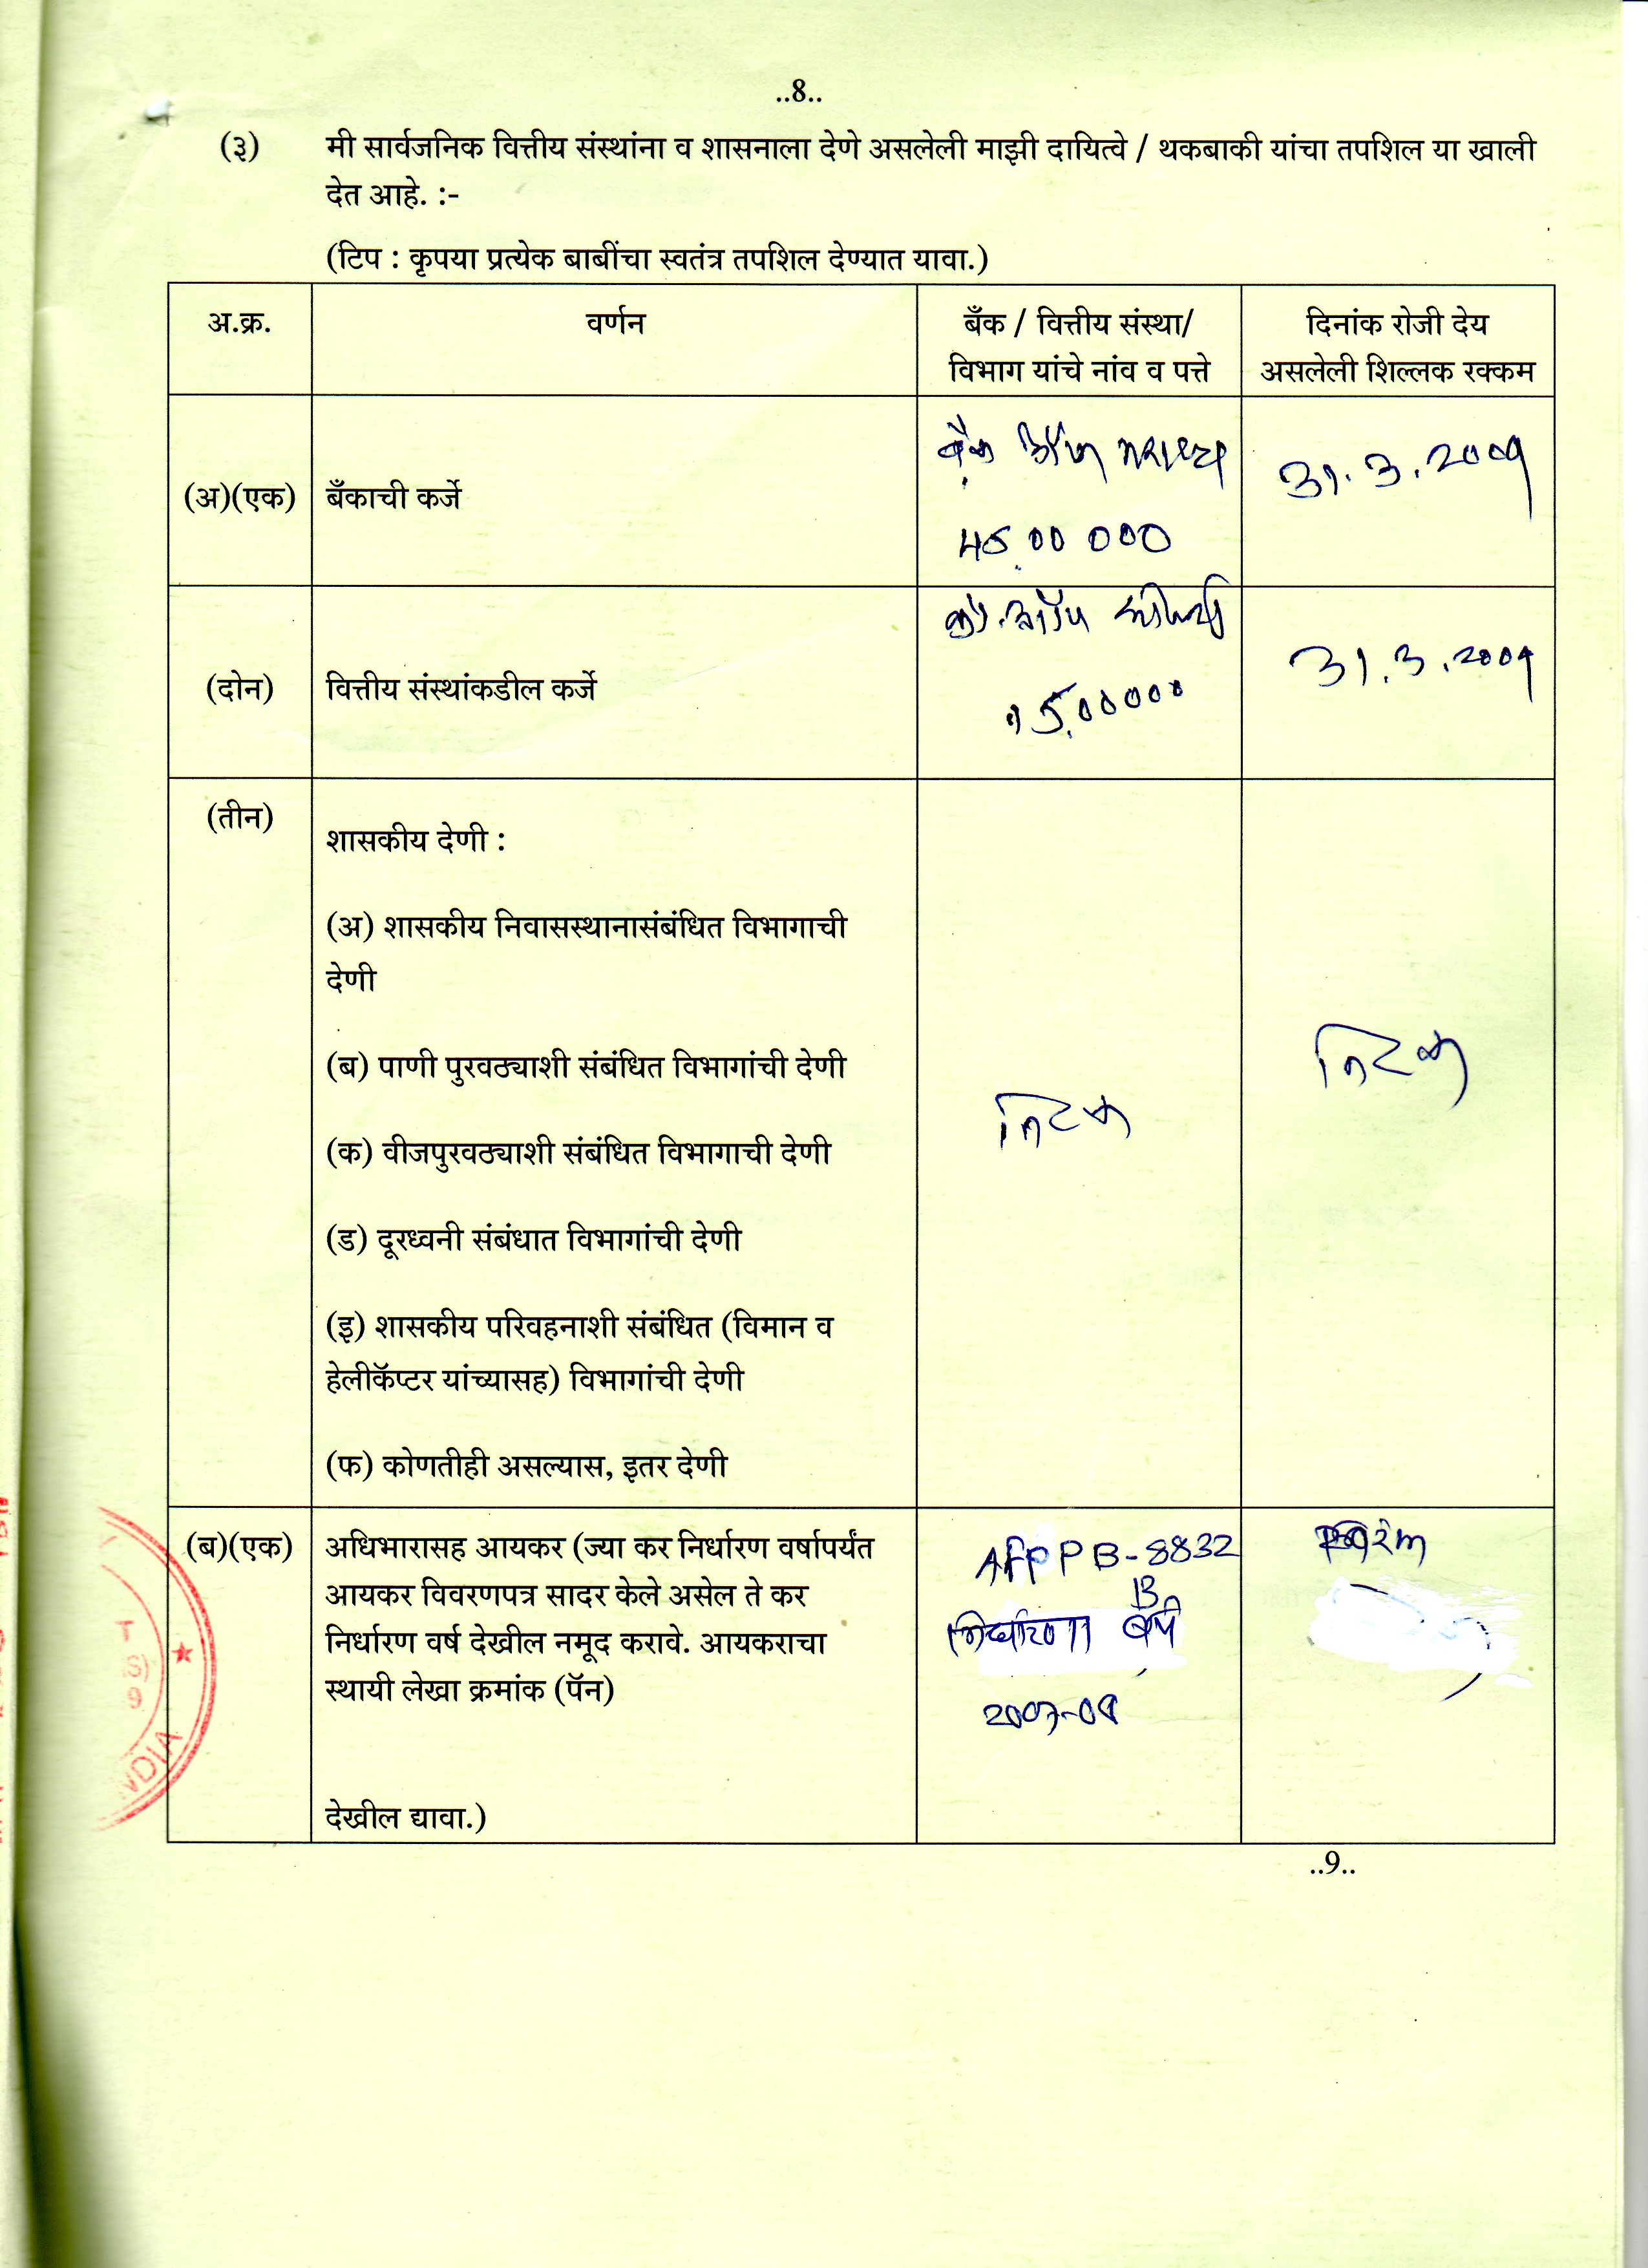 ..8..
(३) मी सार्वजनिक वित्तीय संस्थांना व शासनाला देणे असलेली माझी दायित्वे / थकबाकी यांचा तपशिल या खाली
देत आहे. :-
(टिप : कृपया प्रत्येक बाबींचा स्वतंत्र तपशिल देण्यात यावा.)
अ.क्र.
वर्णन
बँक / वित्तीय संस्था/
विभाग यांचे नांव व पत्ते
दिनांक रोजी देय
असलेली शिल्लक रक्कम
(अ)(एक)
बँकाची कर्जे
बँक ऑफ
00 000
31.3.2009
(दोन)
वित्तीय संस्थांकडील कर्जे
को.ऑप
1500000
31.3.2009
(तीन)
शासकीय देणी :
(अ) शासकीय निवासस्थानासंबंधित विभागाची
देणी
(ब) पाणी पुरवठ्याशी संबंधित विभागांची देणी
(क) वीजपुरवठ्याशी संबंधित विभागाची देणी
(ड) दूरध्वनी संबंधात विभागांची देणी
(इ) शासकीय परिवहनाशी संबंधित (विमान व
हेलीकॅप्टर यांच्यासह) विभागांची देणी
(फ) कोणतीही असल्यास, इतर देणी
निरंक
निरंक
(ब)(एक)
अधिभारासह आयकर (ज्या कर निर्धारण वर्षापर्यंत
आयकर विवरणपत्र सादर केले असेल ते कर
निर्धारण वर्ष देखील नमूद करावे. आयकराचा
स्थायी लेखा क्रमांक (पॅन)
देखील द्यावा.)
AFPPB-8832
B
निर्धारण वर्ष
2007-08
NDIA
..9..